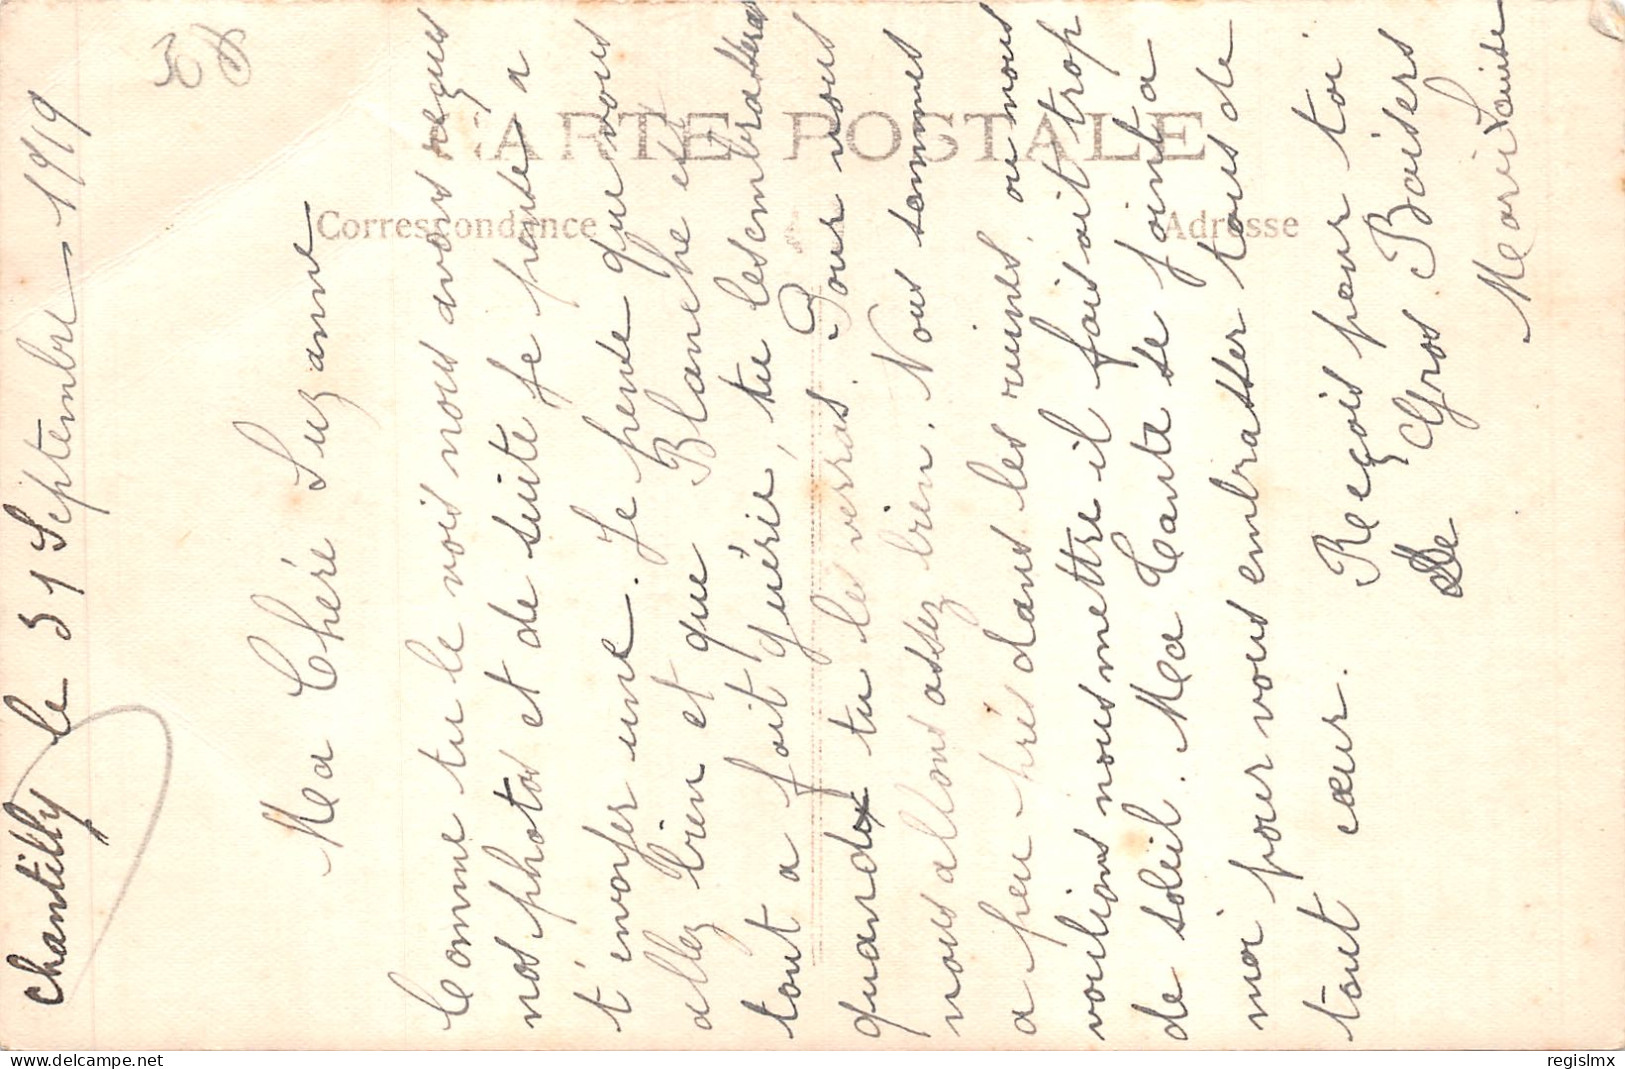 38
CARTE POSTALE
Correspondance
Adresse
Chantilly le 31 Septembre 1919
Ma Chére Suzanne
Comme tu le vois nous avons reçus
nos photos et de suite je pense a
t'envoyer une. Je pense que vous
allez bien et que Blanche est
tout a fait guérie, tu les embrassera
quand tu les verras. Pour nous
nous allons assez bien. Nous sommes
a peu prés dans les ruines, ou nous
voulions nous mettre il faisait trop
de soleil. Ma Tante se joint a
moi pour vous embrasser tous de
tout cœur.
Reçois pour toi
de Gros Baisers
Marie Louise
delcampe.net
regislmx